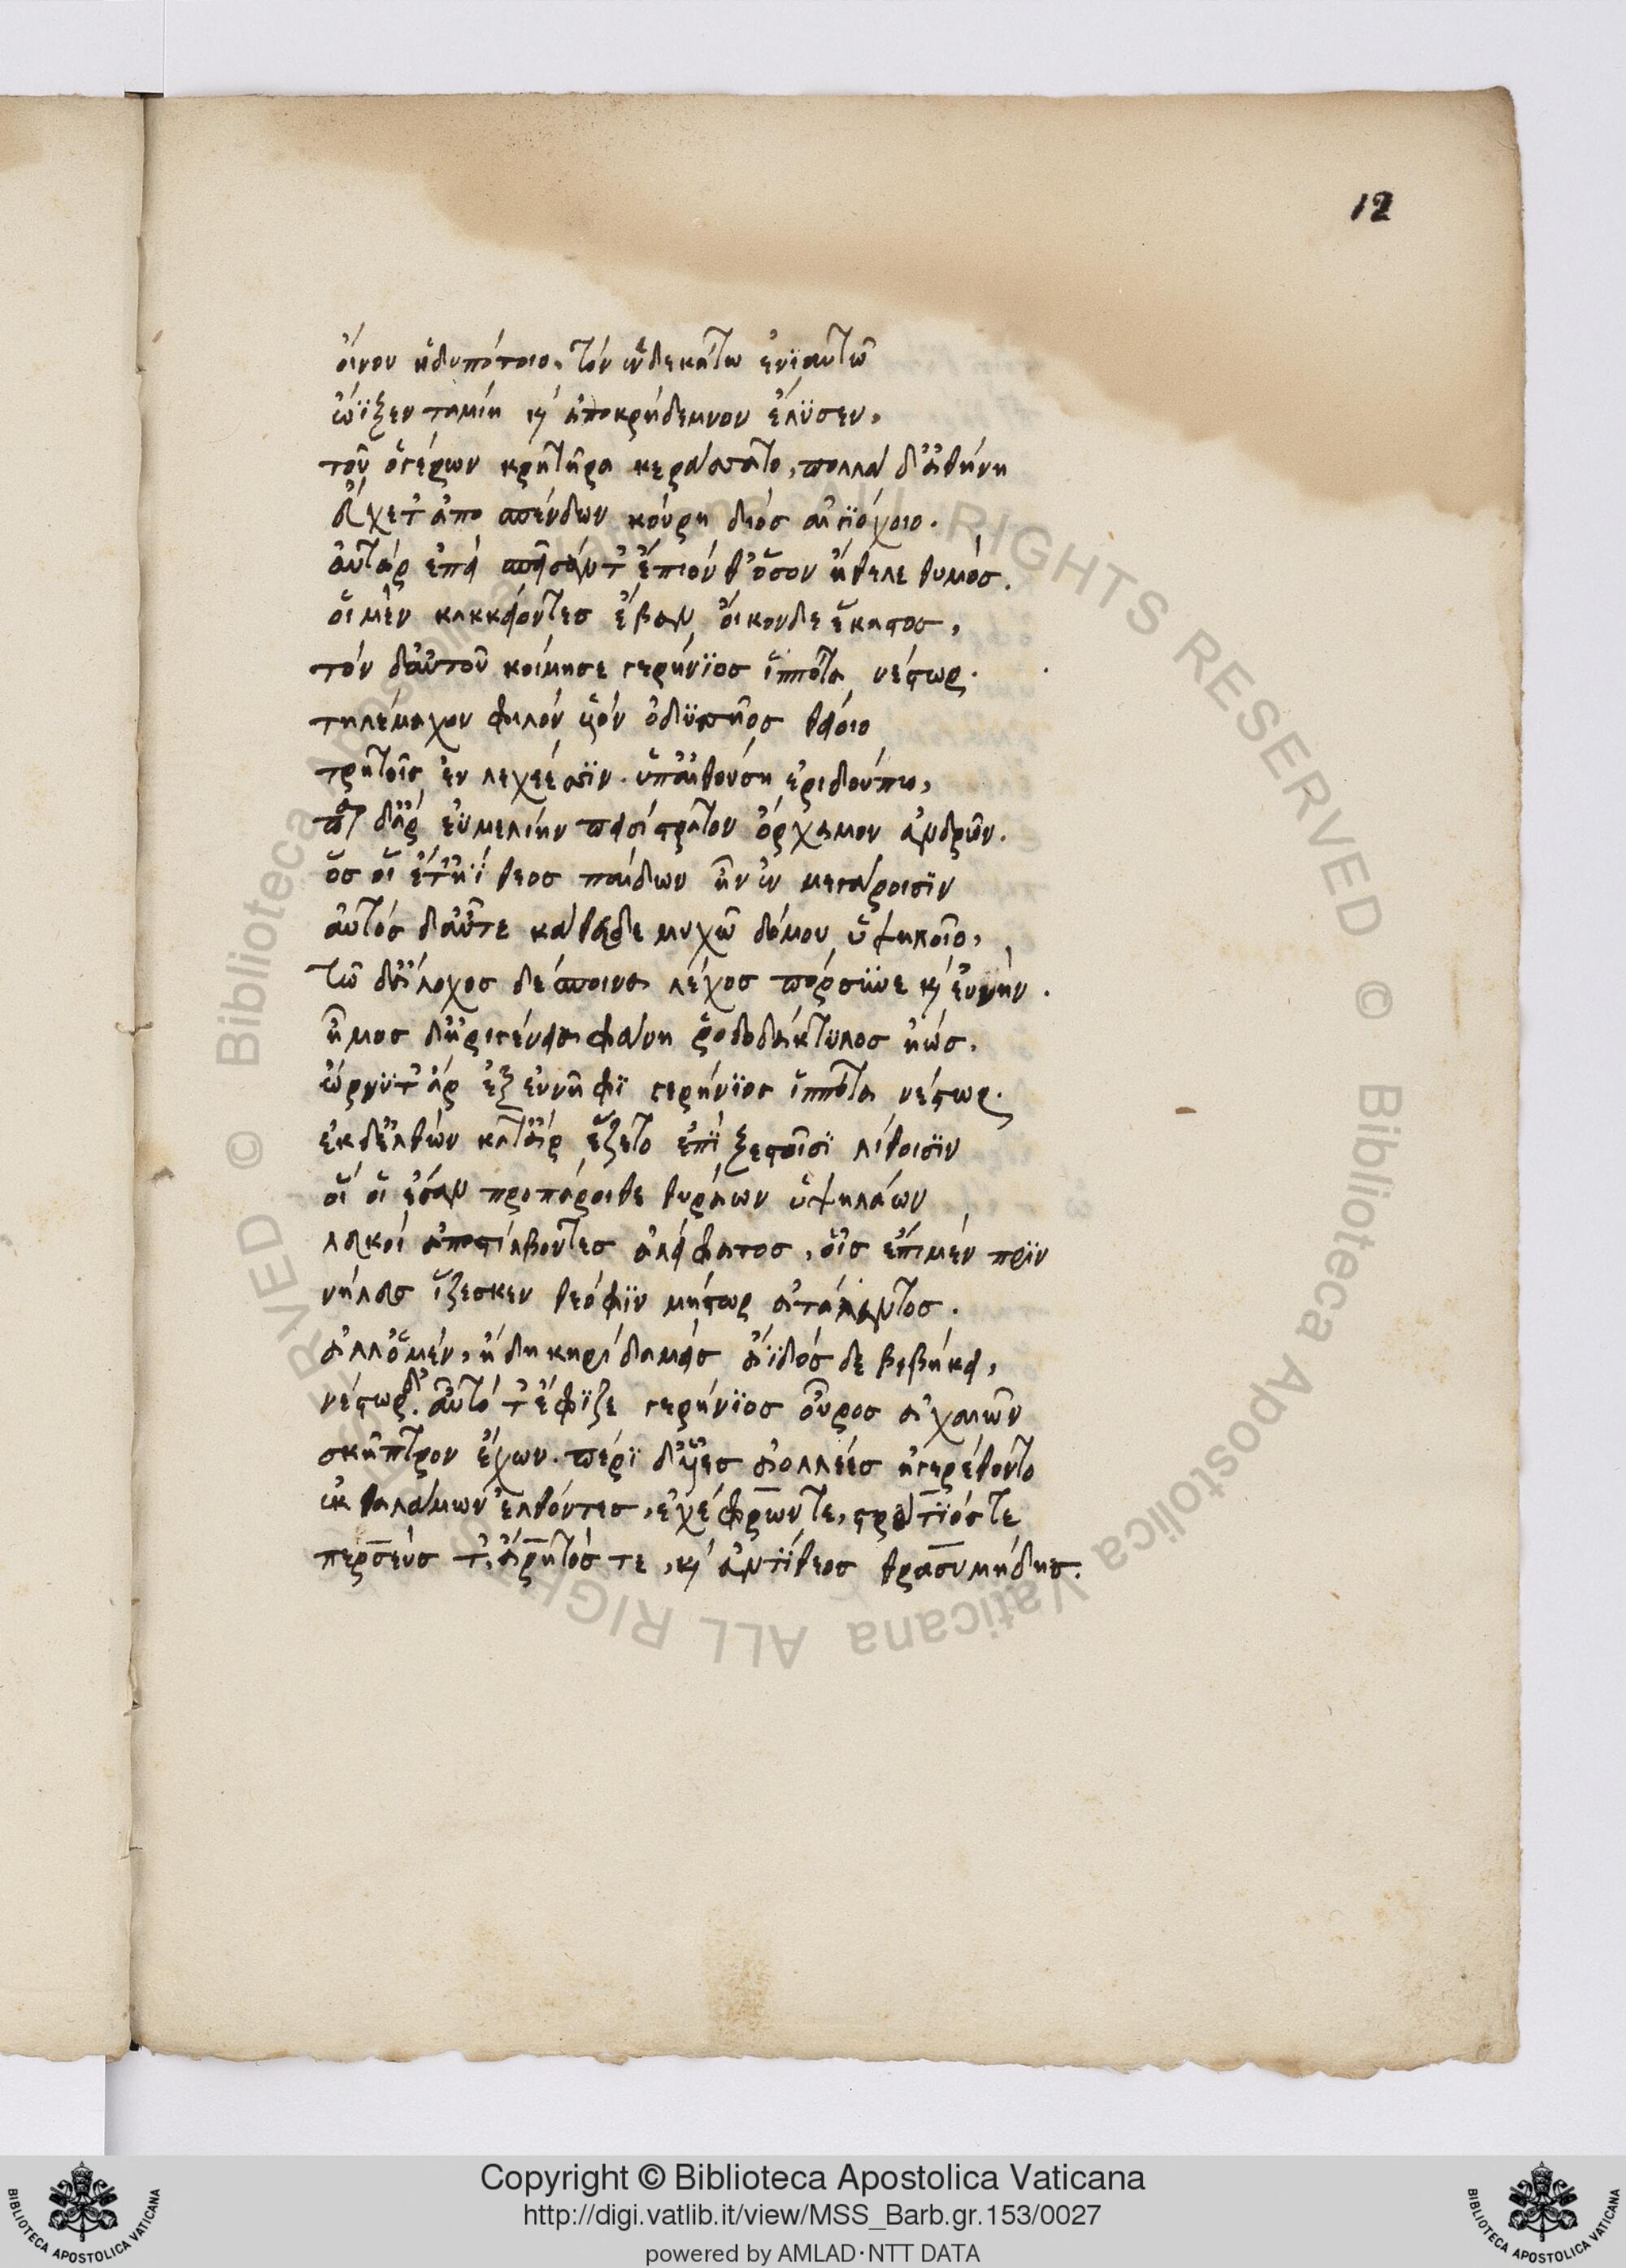 12
οἴνου ἡδυπότοιο, τὸν ἑνδεκάτω ἐνϊαυτῶ
ὤϊξεν ταμίη κὶ ἀποκρήδεμνον ἔλϋσεν,
τοῦ ὁ γέρων κρητῆρα κεράσσατο, πολλὰ δ' ἀθήνη
εὔχετ' ἀπο σπένδων κούρη διὸς αἰγϊόχοιο.
αὐτὰρ ἐπεὶ σπεῖσάν τ' ἔπιόν θ' ὅσον ἤθελε θυμός.
οἱ μὲν κακκείοντες ἔβαν οἶκονδε ἕκαστος,
τὸν δ' αὐτοῦ κοίμησε γερήνϊος ἱππότα νέστωρ.
τηλέμαχον φίλον υἱὸν ὀδϋσσῆος θείοιο
τρητοῖς ἐν λεχέεσσϊν. ὑπ' αἰθούση ἐριδούπω,
παρ δ' ἄρ ἐϋμελίην πεισίστρατον ὄρχαμον ἀνδρῶν.
ὅς οἱ ἔτ' ἠΐθεος παίδων ἦν ἐν μεγάροισϊν
αὐτὸς δ' αὖτε κάθευδε μυχῶ δόμου ὑψηλοῖο,
τῶ δ' ἄλοχος δέσποινα λέχος πόρσυνε κὶ εὐνήν.
ἦμος δ' ἠριγένεια φάνη ῥοδοδάκτυλος ἠώς.
ὤρνϋτ' ἀρ ἐξ εὐνῆφϊ γερήνϊος ἱππότα νέστωρ.
ἐκ δ' ἐλθὼν κατ' ἄρ ἕζετο ἐπὶ ξεστοῖσϊ λίθοισϊν
οἵ οἱ ἔσαν προπάροιθε θυράων ὑψηλάων
λευκοὶ ἀποστίλβοντες ἀλείφατος, οἷς ἔπι μὲν πρϊν
νηλεὺς ἵζεσκεν θεόφϊν μήστωρ ἀτάλαντος.
ἀλλ' ὁ μὲν, ἤδη κηρὶ δαμεὶς ἄϊδός δε βεβήκει,
νέστωρ δ'. αὖ τό τ' ἔφϊζε γερήνϊος οὖρος ἀχαιῶν
σκῆπτρον ἔχων. περὶ δ' υἷες ἀολλέες ἠγερέθοντο
ἐκ θαλάμων ἐλθόντες, ἐχέφρων τε, στρατΐός τε
περσεύς τ', ἄρητός τε, κὶ ἀντίθεος θρασυμήδης.
Copyright © Biblioteca Apostolica Vaticana
http://digi.vatlib.it/view/MSS_Barb.gr.153/0027
powered by AMLAD·NTT DATA
BIBLIOTECA APOSTOLICA VATICANA
BIBLIOTECA APOSTOLICA VATICANA
© Biblioteca Apostolica Vaticana ALL RIGHTS RESERVED © Biblioteca Apostolica Vaticana ALL RIGHTS RESERVED